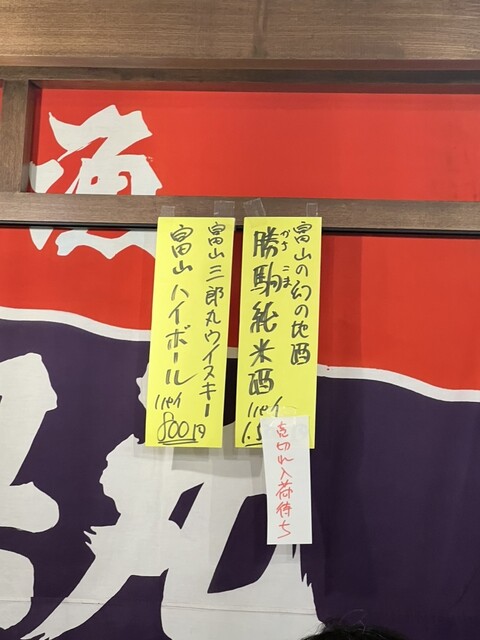 富山の幻の地酒
かち こま
勝駒純米酒
1パイ
1.5
売切れ入荷待ち
富山三郎丸ウイスキー
富山ハイボール
1パイ
800円
酒